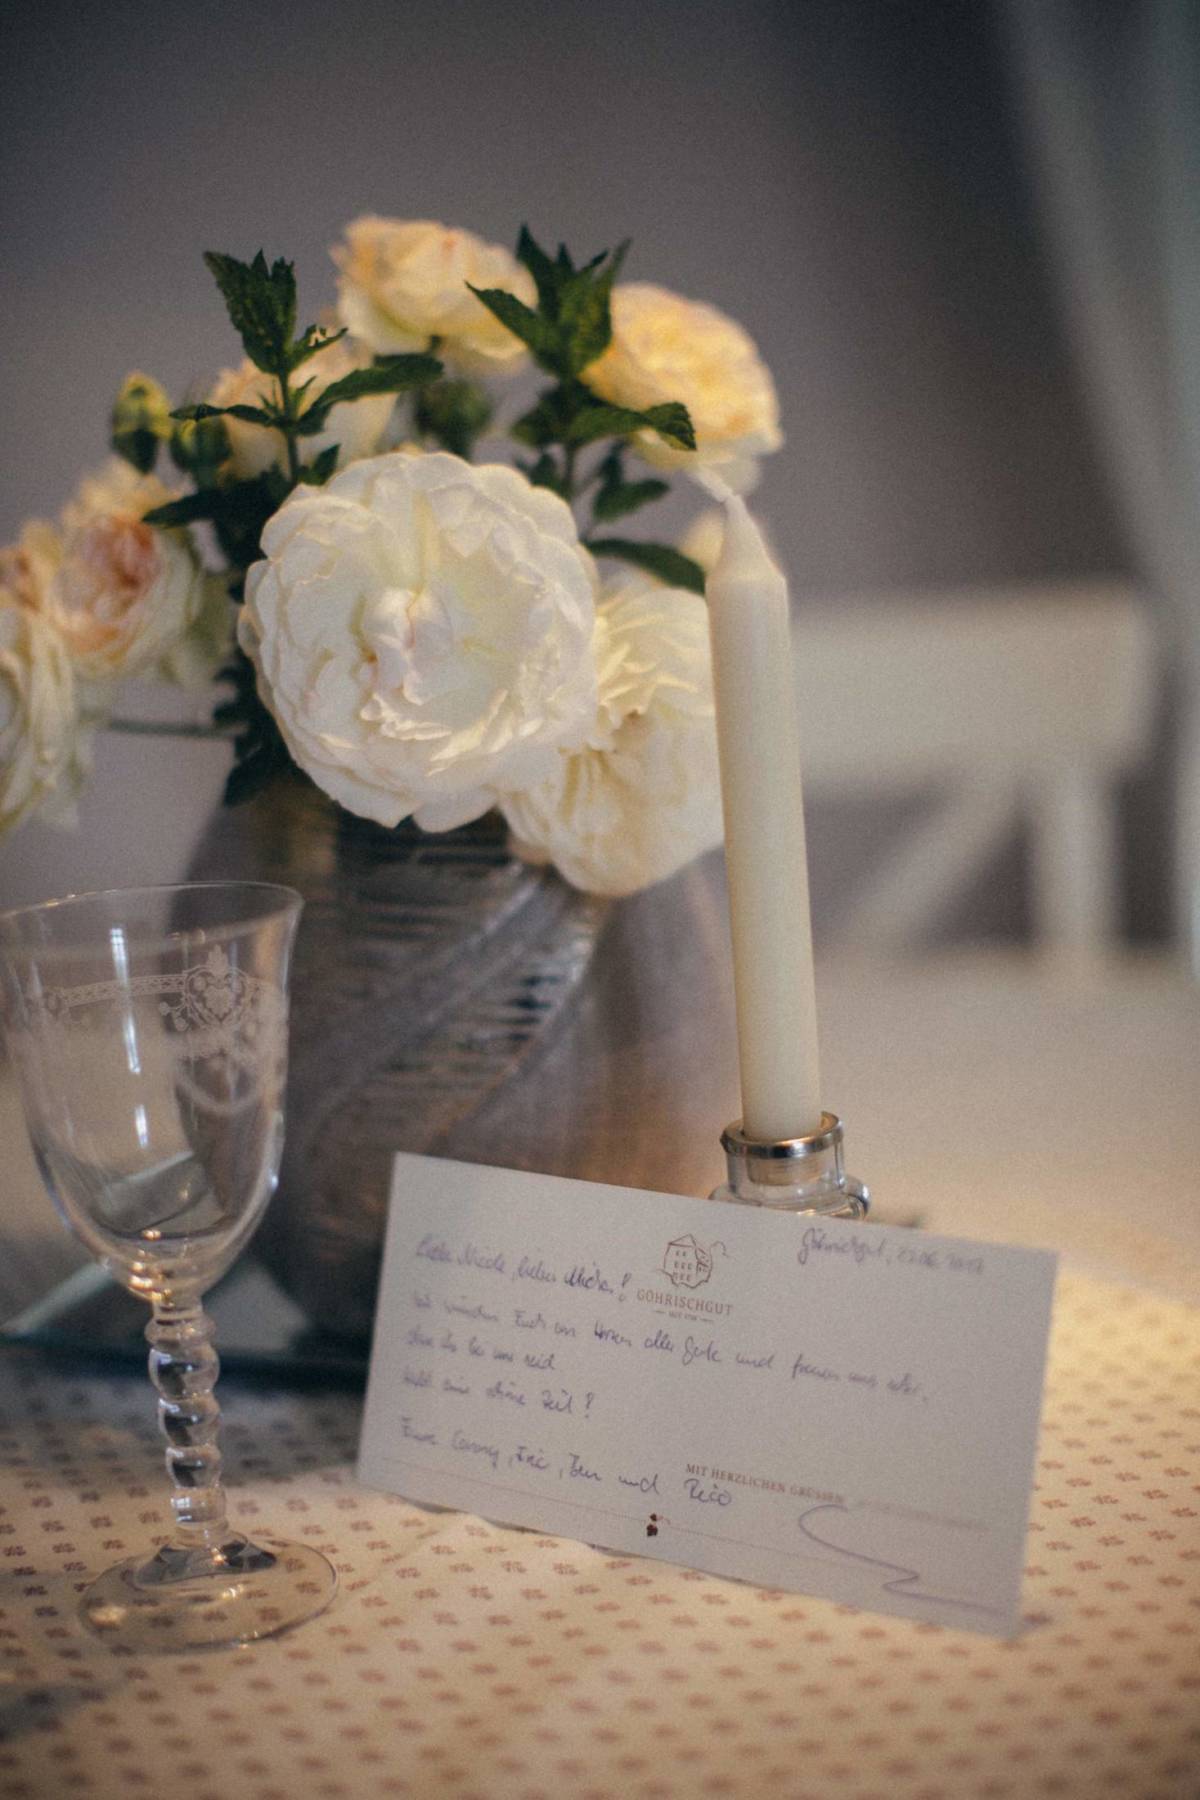 Göhrischgut, 23.06.2017
Liebe Nicole, lieber Micha!
GÖHRISCHGUT
Wir wünschen Euch von Herzen alles Gute und freuen uns sehr,
dass ihr bei uns seid
Habt eine schöne Zeit!
Eure Conny, Eric, Ben und Rico
MIT HERZLICHEN GRÜSSEN